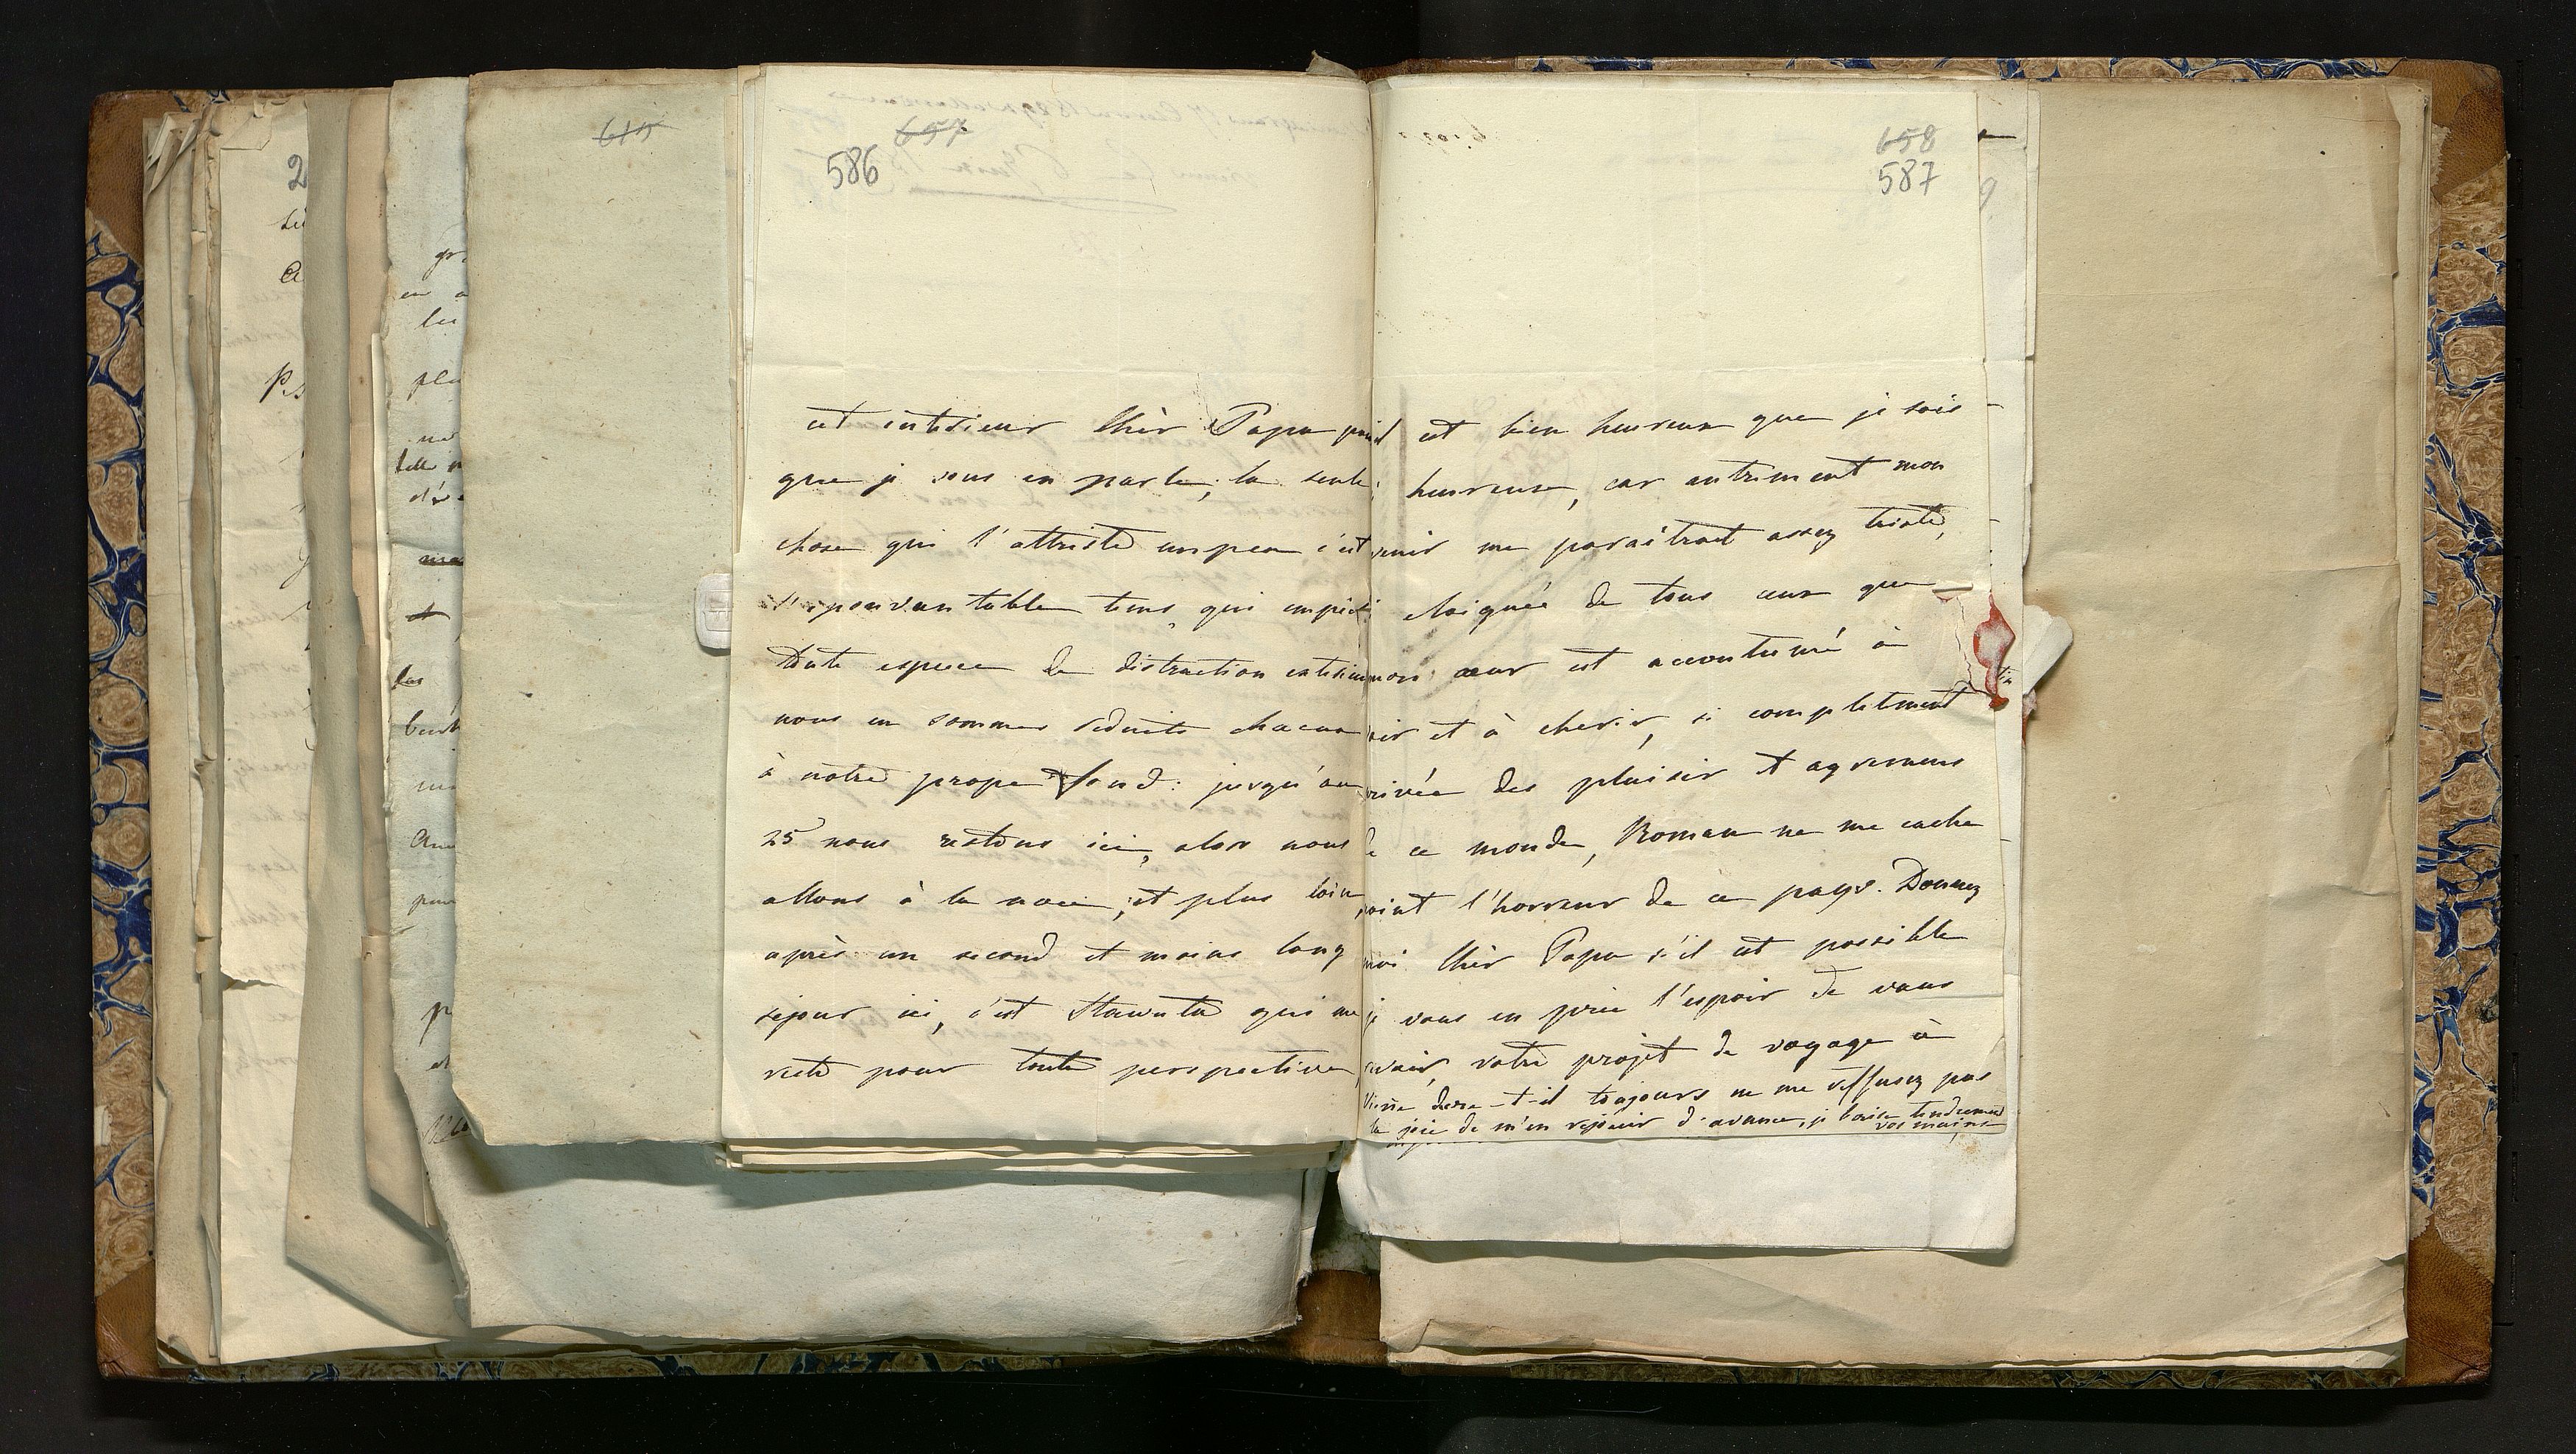 657
586
et intérieur Chèr Papa
que je vous en parle, la seule
chose qui l'attriste un peu c'est
epouvantable tems, qui
toute espece de distraction
nous en sommes reduits chacun
à notre propre fond: jusqu'au
25 nous restons ici, alor nous
allons à la noce, et plus loin,
après un second et moins long
séjour ici, c'est Stawuta qui me
reste pour toute perspective,
658
587
est bien heureux que je sois
heureuse, car autrement mon
me paraîtrait assez triste,
eloignée de tous ceux que
mon cœur est accoutumé à
et à cherir, si completement
des plaisir et agremens
ce monde, Roman ne me cache
point l'horreur de ce pays. Donnez
moi Chèr Papa s'il est possible
je vous en prie l'espoir de vous
revoir, votre projet de voyage à
Vienne dure-t-il toujours ne me reffusez pas
la joie de m'en rejouir d'avance, je baise tendrement
vos mains
615